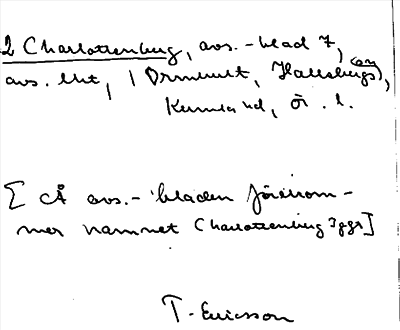 2 Charlottenburg, avs.-blad 7,
avs. litt, 1 Ormhult, Hallsbergs (en),
Kumla hd, Ör. l.
[ På avs.-bladen förekom-
mer namnet Charlottenburg 3ggr]
T. Ericsson